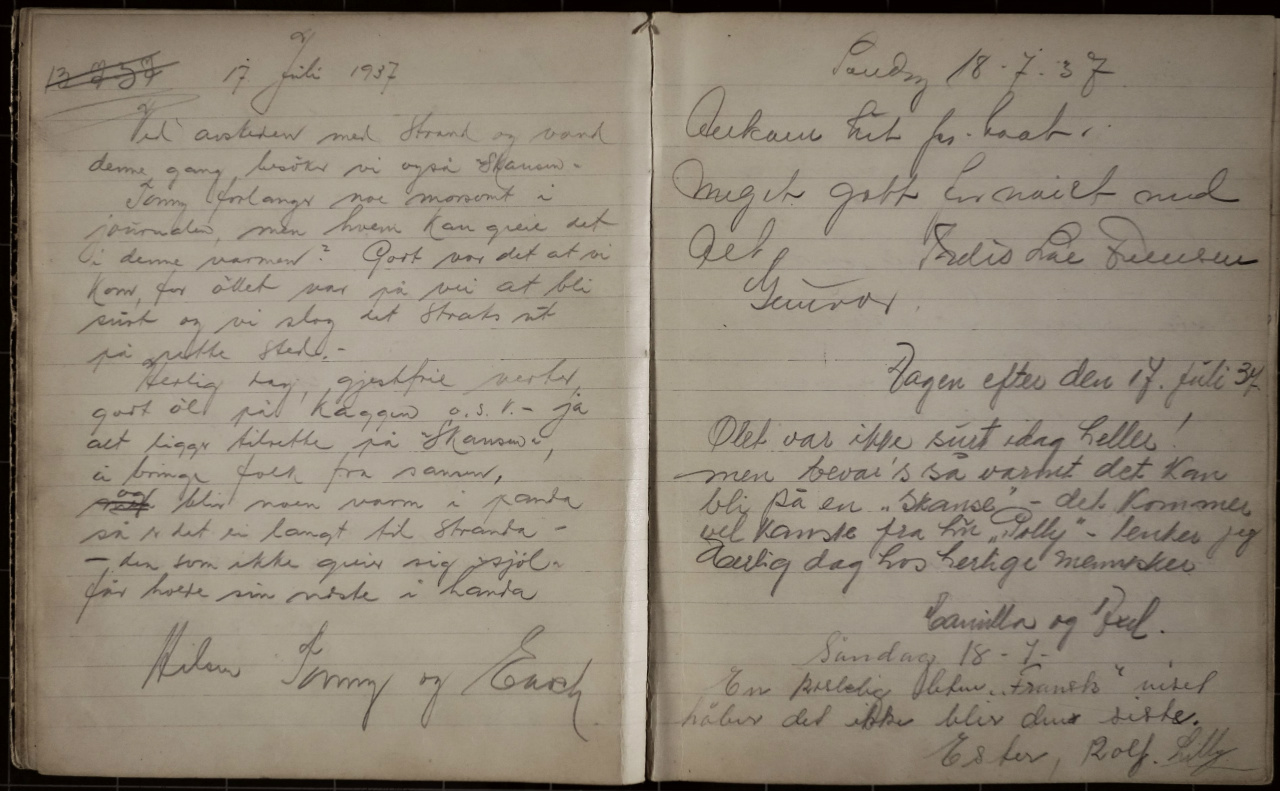 17 Juli 1937
Ved avskeden med Strand og vand
denne gang, besöker vi også "Skansen".
Tommy forlanger noe morsomt i
journalen, men hvem kan greie det
i denne varmen? Godt var det at vi
kom, for öllet var på vei at bli
surt og vi slog det straks ut
på rette sted.-
Herlig dag, gjestfrie verter,
godt öl på kaggen o.s.v.- ja
alt ligger tilrette på "Skansen",
å bringe folk fra sansen,
og blir noen varm i panda
så er det ei langt til Stranda -
- den som ikke greier sig sjöl-
får holde sin neste i handa
Hilsen Tommy og
Søndag 18-7-37
Ankom hit pr. baat.
Meget godt fornöiet med
alt
Gunvor.
Dagen efter den 17. juli 37.
Det var ikke surt idag heller!
men bevar's så varmt det kan
bli på en "Skanse" - det kommer
vel kanske fra hin "Polly" - tenker jeg
Herlig dag hos hertige mennesker
Camilla og
Søndag 18-7-
En koselig liten "Fransk" visit
håber det ikke blir den siste.
Ester, Rolf. Lilly